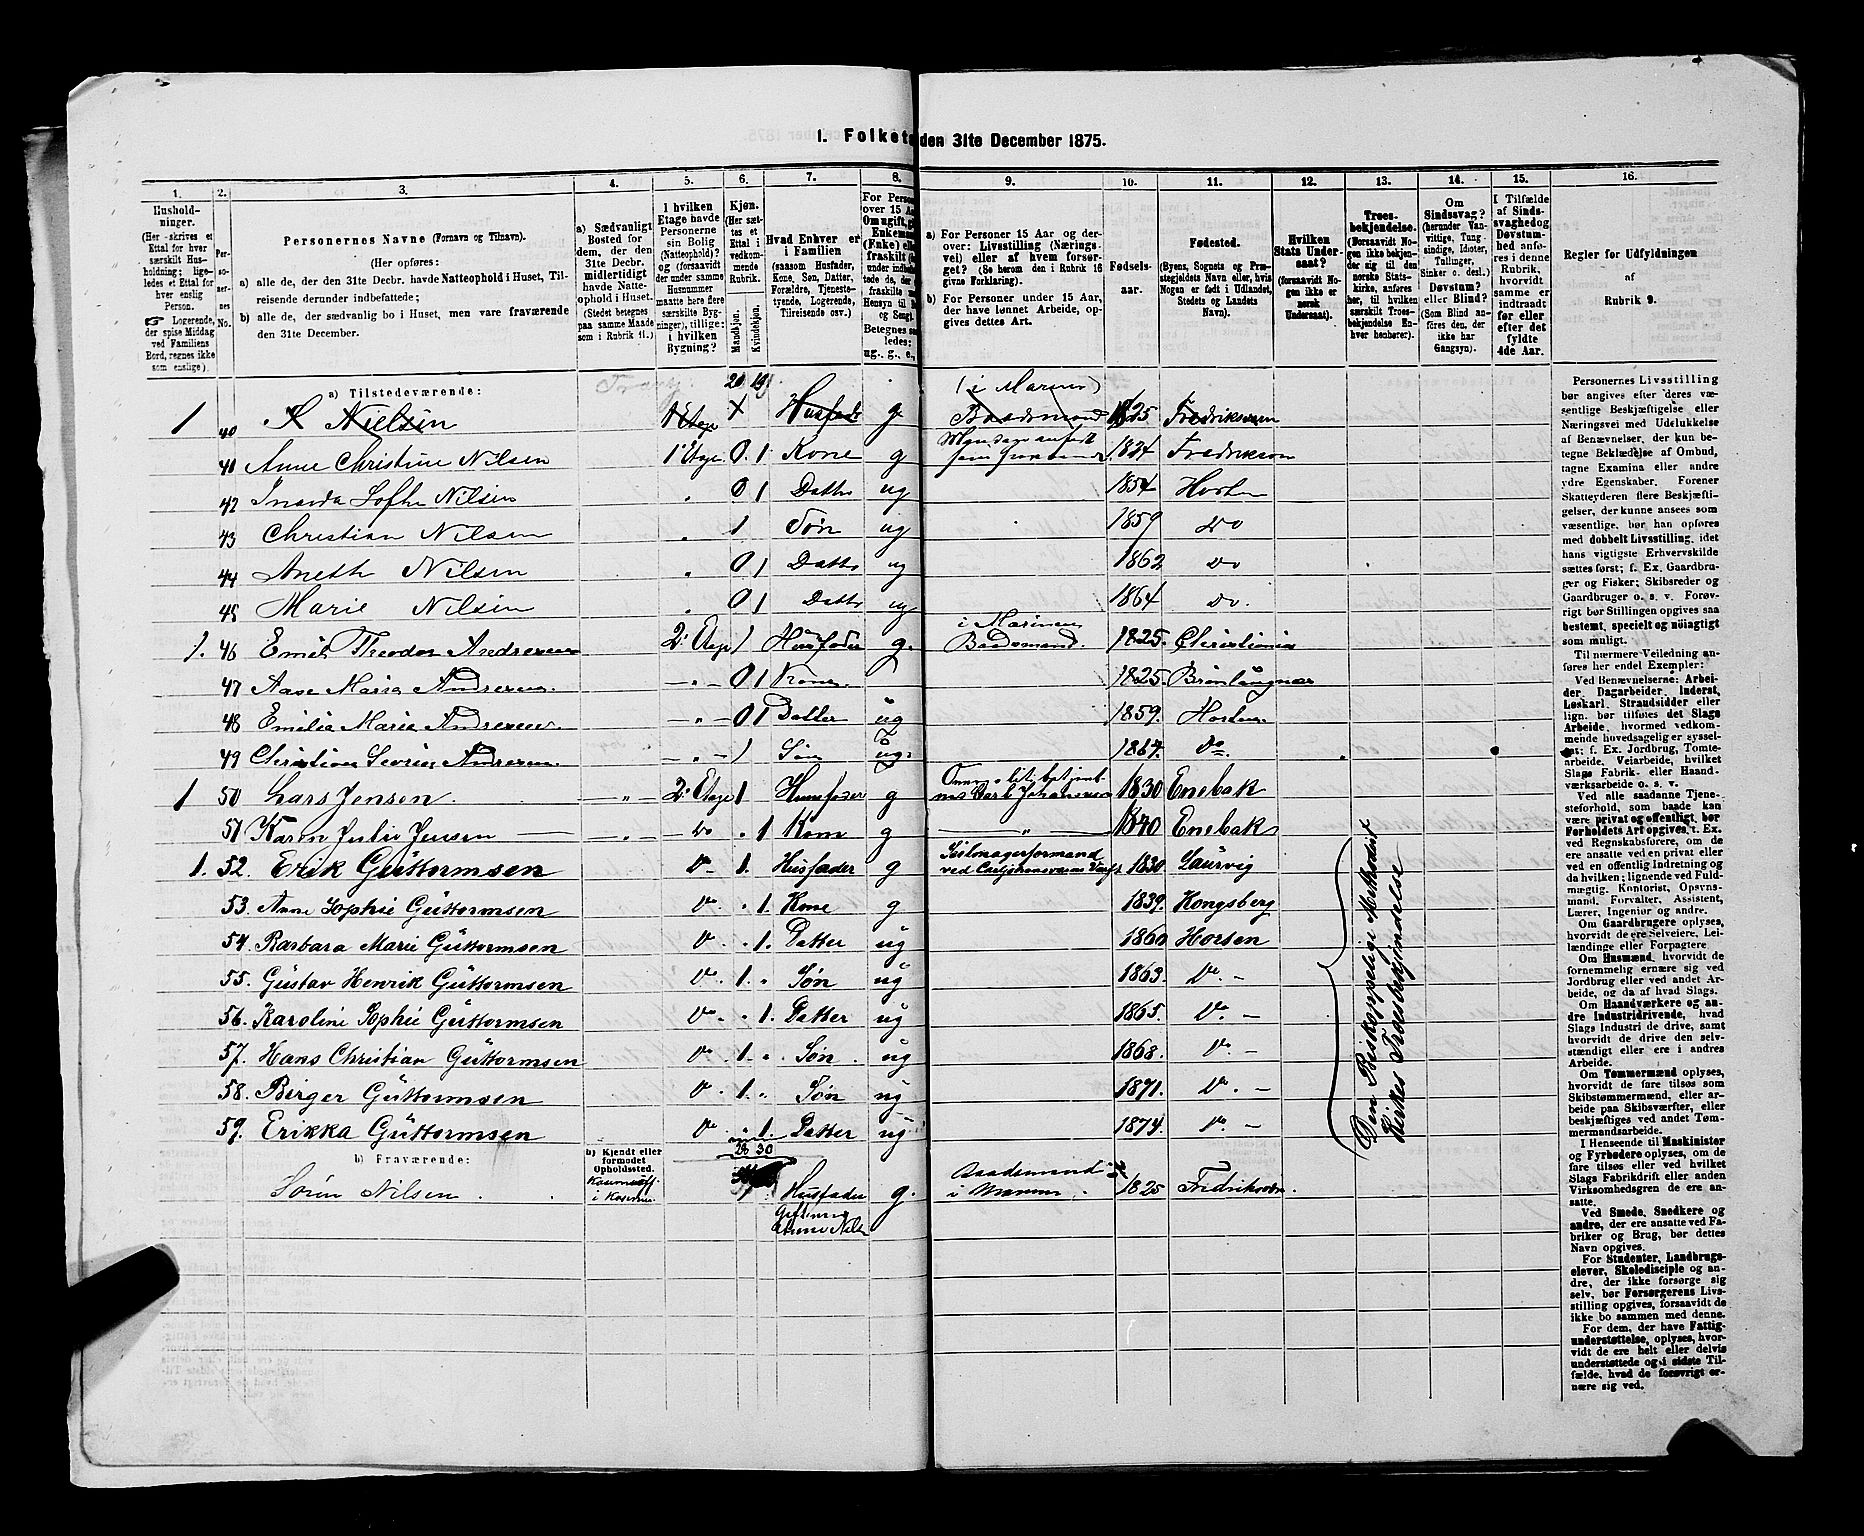 1. Folketæ den 31te December 1875.
1. 2. 3. 4. 5. 6. 7. 8. 9. 10. 11. 12. 13. 14. 15. 16.
Hushold-
ninger.
(Her skrives et
Ettal for hver
særskilt Hus-
holdning; lige-
ledes et Ettal for
hver enslig
Person.
Logerende,
der spise Middag
ved Familiens
Bord, regnes ikke
som enslige).
Per-
so-
ner-
nes
No.
Personernes Navne (Fornavn og Tilnavn).
(Her opføres:
a) alle de, der den 31te Decbr. havde Natteophold i Huset, Til-
reisende derunder indbefattede;
b) alle de, der sædvanlig bo i Huset, men vare fraværende
den 31te December.
a) Sædvanligt
Bosted for
dem, der den
31te Decbr.
midlertidigt
havde Natte-
ophold i Huset.
(Stedet betegnes
paa samme Maade
som i Rubrik 11.)
I hvilken
Etage havde
Personerne
sin Bolig
(Natteophold)?
og (forsaavidt
der under samme
Husnummer
maatte høre flere
særskilte Byg-
ninger), tillige:
i hvilken
Bygning?
Kjøn.
(Her sæt-
tes et
Ettal i
vedkom-
mende
Rubrik.
Mandkjøn.
Kvindekjøn.
Hvad Enhver er
i Familien
(saasom Husfader,
Kone, Søn, Datter,
Forældre, Tjeneste-
tyende, Logerende,
Tilreisende osv.)
For Person
over 15 Aa
Om ugift, g
Enkema
(Enke) elle
fraskilt (
under indbe
tede de, der
fraskilte
Hensyn til B
og Seng).
Betegnes sa
ledes:
ug., g., e.,
a) For Personer 15 Aar og der-
over: Livsstilling (Nærings-
vei) eller af hvem forsør-
get? (Se herom den i Rubrik 16
givne Forklaring).
b) For Personer under 15 Aar,
der have lønnet Arbeide, op-
gives dettes Art.
Fødsels-
aar.
Fødested.
(Byens, Sognets og Præ-
stegjeldets Navn eller, hvis
Nogen er født i Udlandet,
Stedets og Landets
Navn).
Hvilken
Stats Under-
saat?
(forsaavidt No-
gen ikke er
norsk
Undersaat).
Troes-
bekjendelse.
(Forsaavidt No-
gen ikke bekjen-
der sig til den
norske Stats-
kirke, anføres
her, til hvilken
særskilt Troes-
bekjendelse En-
hver henhører).
Om
Sindssvag?
(herunder Van-
vittige, Tung-
sindige, Idioter,
Tullinger,
Sinker o. desl.)
Døvstum?
eller Blind?
(Som Blind an-
føres den, der
ikke har
Gangsyn).
I Tilfælde
af Sinds-
svaghed og
Døvstum-
hed anfø-
res i denne
Rubrik,
hvorvidt
samme er
indtraadt
før eller
efter det
fyldte
4de Aar.
Regler for Udfyldningen
af
Rubrik 9.
a) Tilstedeværende: 20 19
1 40 Nielsen 1 Etage Husfader g (i Marinen) Baadsmand 1825 Fredriksvern
41 Anne Christine Nilsen 1 Etage 0 1 Kone g 1834 Fredriksvern
42 Sofhe Nilsen 0 1 Datter ug 1854 Horten
43 Christian Nilsen 1 Søn ug 1859 Do
44 Aneth Nilsen 0 1 Datter ug 1862 Do
45 Marie Nilsen 0 1 Datter ug 1864 Do.
1. 46 Emil Theodor Andresen 2. Etage 1 Husfader g. i Marinen Baadsmand. 1825. Christiania
47 Aase Maria Andresen. — „ — 0 1 Kone. 1825. Brønlaugnæs
48 Emilia Maria Andresen — „ — 0 1 Datter ug 1859. Horten
49 Christian Severin Andresen — „ — 1 Søn ug. 1867. Do
1 50 Lars Jensen. „ 2. Etage 1 Husfader g 1830 Enebak
51 Karen Julie Jensen „ Do „ 1 Kone g „ 1840 Enebak
1. 52. Erik Guttormsen Do 1. Husfader g Seilmagerformand ved Carljohansværns Værft 1830 Laurvig
53. Anne Sophie Guttormsen Do „ 1. Kone g 1839. Kongsberg
54. Barbara Marie Guttormsen Do „ 1. Datter ug 1860 Horten
55. Gustav Henrik Guttormsen Do 1. „ Søn ug 1863. Do —
56. Karoline Sophie Guttormsen Do „ 1. Datter ug 1865. Do —
57. Hans Christian Guttormsen Do 1. „ Søn ug 1868. Do —
58. Birger Guttormsen Do 1. „ Søn ug 1871. Do —
59. Erikka Guttormsen Do „ 1. Datter ug 1874. Do —
Den Biskoppelige Methodist
Kirkes Troesbekjendelse
b) Fraværende:
b) Kjendt eller
formodet
Opholdssted.
26 30
Sørin Nilsen Husfader g. Baadsmand i Marinen 1825 Fredriksværn.
Personernes Livsstilling
bør angives efter deres væ-
sentlige Beskjæftigelse eller
Næringsvei med Udelukkelse
af Benævnelser, der kun be-
tegne Beklædelse af Ombud,
tagne Examina eller andre
ydre Egenskaber. Forener
Skatteyderen flere Beskjæfti-
gelser, der kunne ansees som
væsentlige, bør han opføres
med dobbelt Livsstilling, idet
hans vigtigste Erhvervskilde
sættes først; f. Ex. Gaardbru-
ger og Fisker; Skibsreder og
Gaardbruger o. s. v. Forøv-
rigt bør Stillingen opgives saa
bestemt, specielt og nøiagtigt
som muligt.
Til nærmere Veiledning an-
føres her endel Exempler:
Ved Benævnelserne: Arbei-
der, Dagarbeider, Inderst,
Løskarl, Strandsidder eller
lign. bør tilføies det Slags
Arbeide, hvormed vedkom-
mende hovedsagelig er syssel-
sat; f. Ex. Jordbrug, Tomte-
arbeide, Veiarbeide, hvilket
Slags Fabrik- eller Haand-
værksarbeide o. s. v.
Ved alle saadanne Tjene-
steforhold, som baade kan
være privat og offentligt, bør
Forholdets Art opgives, f. Ex.
ved Regnskabsførere, om de
ere ansatte ved en privat eller
ved en offentlig Indretning og
da hvilken; lignende ved Fuld-
mægtig, Kontorist, Opsyns-
mand, Forvalter, Assistent,
Lærer, Ingeniør og andre.
Om Gaardbrugere oplyses,
hvorvidt de ere Selveiere, Lei-
lændinge eller Forpagtere.
Om Husmænd, hvorvidt de
fornemmelig ernære sig ved
Jordbrug eller ved andet Ar-
beide, og da af hvad Slags.
Om Haandværkere og an-
dre Industridrivende, hvad
Slags Industri de drive, samt
hvorvidt de drive den selv-
stændigt eller ere i andres
Arbeide.
Om Tømmermænd oplyses,
hvorvidt de fare tilsøs som
Skibstømmermænd, eller ar-
beide paa Skibsværfter, eller
beskjæftiges ved andet Tøm-
mermandsarbeide.
I Henseende til Maskinister
og Fyrbødere oplyses, om de
fare tilsøs eller ved hvilket
Slags Fabrikdrift eller anden
Virksomhedsgren de ere an-
satte.
Ved Smede, Snedkere og
andre, der ere ansatte ved Fa-
briker og Brug, bør dettes
Navn opgives.
For Studenter, Landbrugs-
elever, Skoledisciple og an-
dre, der ikke forsørge sig
selv, bør Forsørgerens Livs-
stilling opgives, forsaavidt de
ikke bo sammen med denne.
For dem, der have Fattig-
understøttelse, oplyses, hvor-
vidt de ere helt eller delvis
understøttede og i sidste Til-
fælde, hvad de forøvrigt er-
nære sig ved.